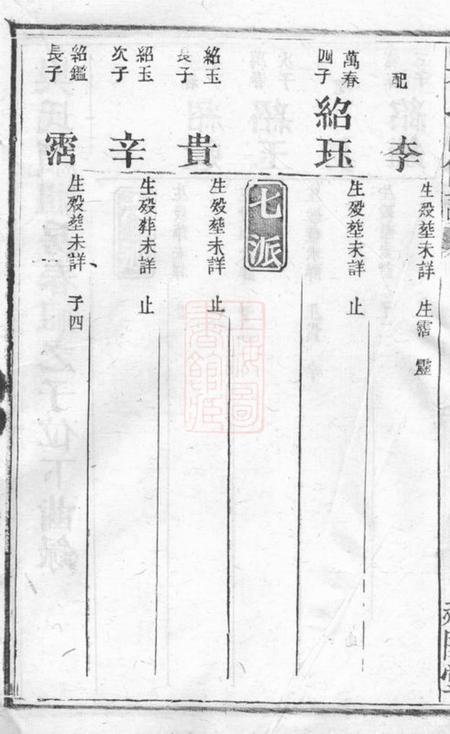 配
李
生殁塟未詳 生霑 靈
萬春
四子
紹珏
生殁塟未詳 止
七派
紹玉
長子
貴
生殁塟未詳 止
紹玉
次子
辛
生殁葬未詳 止
紹鑑
長子
霑
生殁塟未詳 子四